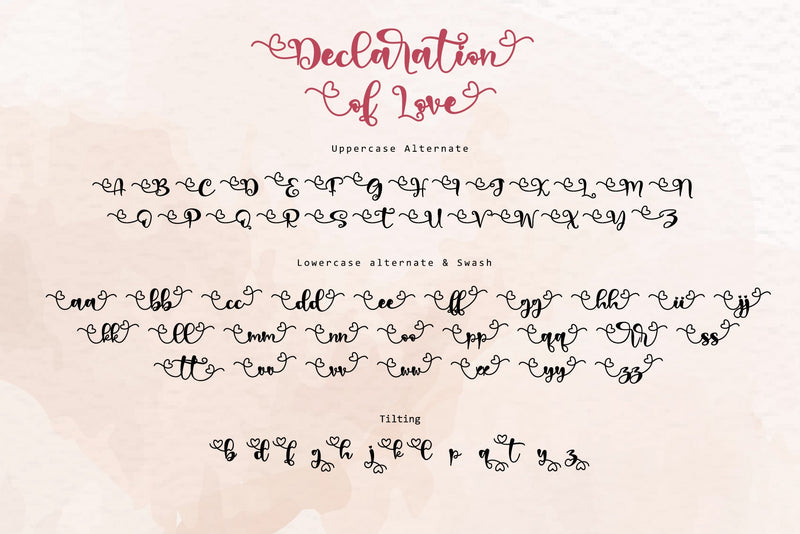 Declaration
of Love
Uppercase Alternate
A B C D E F G H I J K L M N
O P Q R S T U V W X Y Z
Lowercase alternate & Swash
aa bb cc dd ee ff gg hh ii jj
kk ll mm nn oo pp qq rr ss
tt uu vv ww xx yy zz
Tilting
b d f g h j k l p q t y z